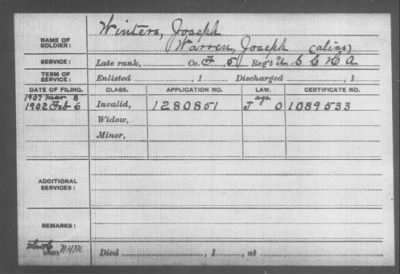 NAME OF SOLDIER: Winters, Joseph
Warren, Joseph (alias)
SERVICE: Late rank, Co. F, 5 Reg't U S C H A
TERM OF SERVICE: Enlisted , 1 Discharged , 1
DATE OF FILING. CLASS. APPLICATION NO. LAW. CERTIFICATE NO.
1907 Mar 8 age
1902 Feb 6 Invalid, 1280851 J O 1089533
Widow,
Minor,
ADDITIONAL SERVICES:
REMARKS:
N.H.M. Died , 1 , at